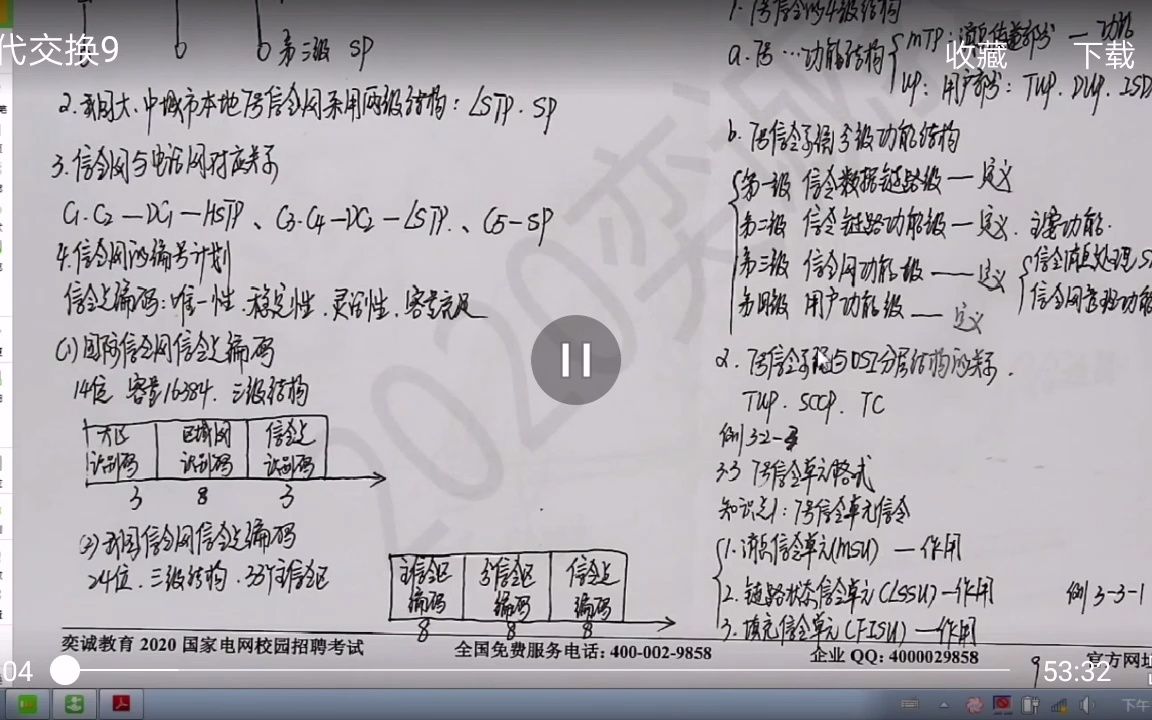 代交换9
收藏
下载
第三级 SP
2.我国大、中城市本地7号信令网采用两级结构：LSTP、SP
3.信令网与电话网对应关系
C1、C2—DC1—HSTP、C3、C4—DC2—LSTP、C5—SP
4.信令网的编号计划
信令点编码：唯一性、稳定性、灵活性、容量充足
(1)国际信令网信令点编码
14位 容量16384、三级结构
大区识别码 区域网识别码 信令点识别码
3 8 3
(2)我国信令网信令点编码
24位、三级结构、33个主信令区
主信令区编码 分信令区编码 信令点编码
8 8 8
1.7号信令的4级结构
a.7号…功能结构
MTP：消息传递部分 — 功能
UP：用户部分：TUP、DUP、ISD
b.7号信令系统分级功能结构
第一级 信令数据链路级 — 定义
第二级 信令链路功能级 — 定义、主要功能.
第三级 信令网功能级 — 定义
信令消息处理
信令网管理功能
第四级 用户功能级 — 定义
2.7号信令系统与OSI分层结构的关系.
TUP、SCCP、TC
例3-2-
3.3 7号信令单元格式
知识点1：7号信令单元信令
1.消息信令单元(MSU) — 作用
2.链路状态信令单元(LSSU) — 作用
例3-3-1
3.填充信令单元(FISU) — 作用
奕诚教育 2020 国家电网校园招聘考试
全国免费服务电话: 400-002-9858
企业 QQ: 4000029858
官方网址
9
04
53:32
下午
2020奕诚